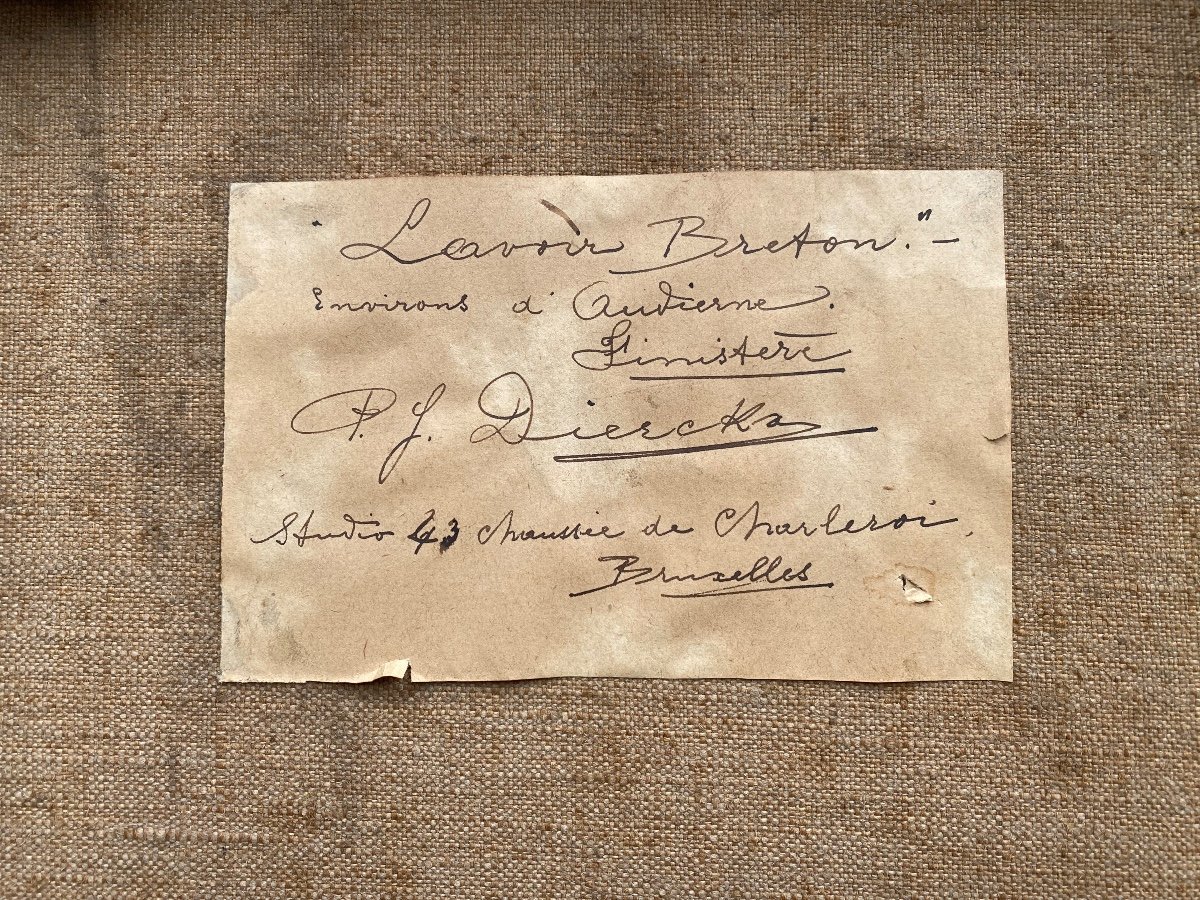 "Lavoir Breton." -
Environs d'Audierne.
Finistère
P. J. Dierckx
Studio 43 chaussée de Charleroi.
Bruxelles